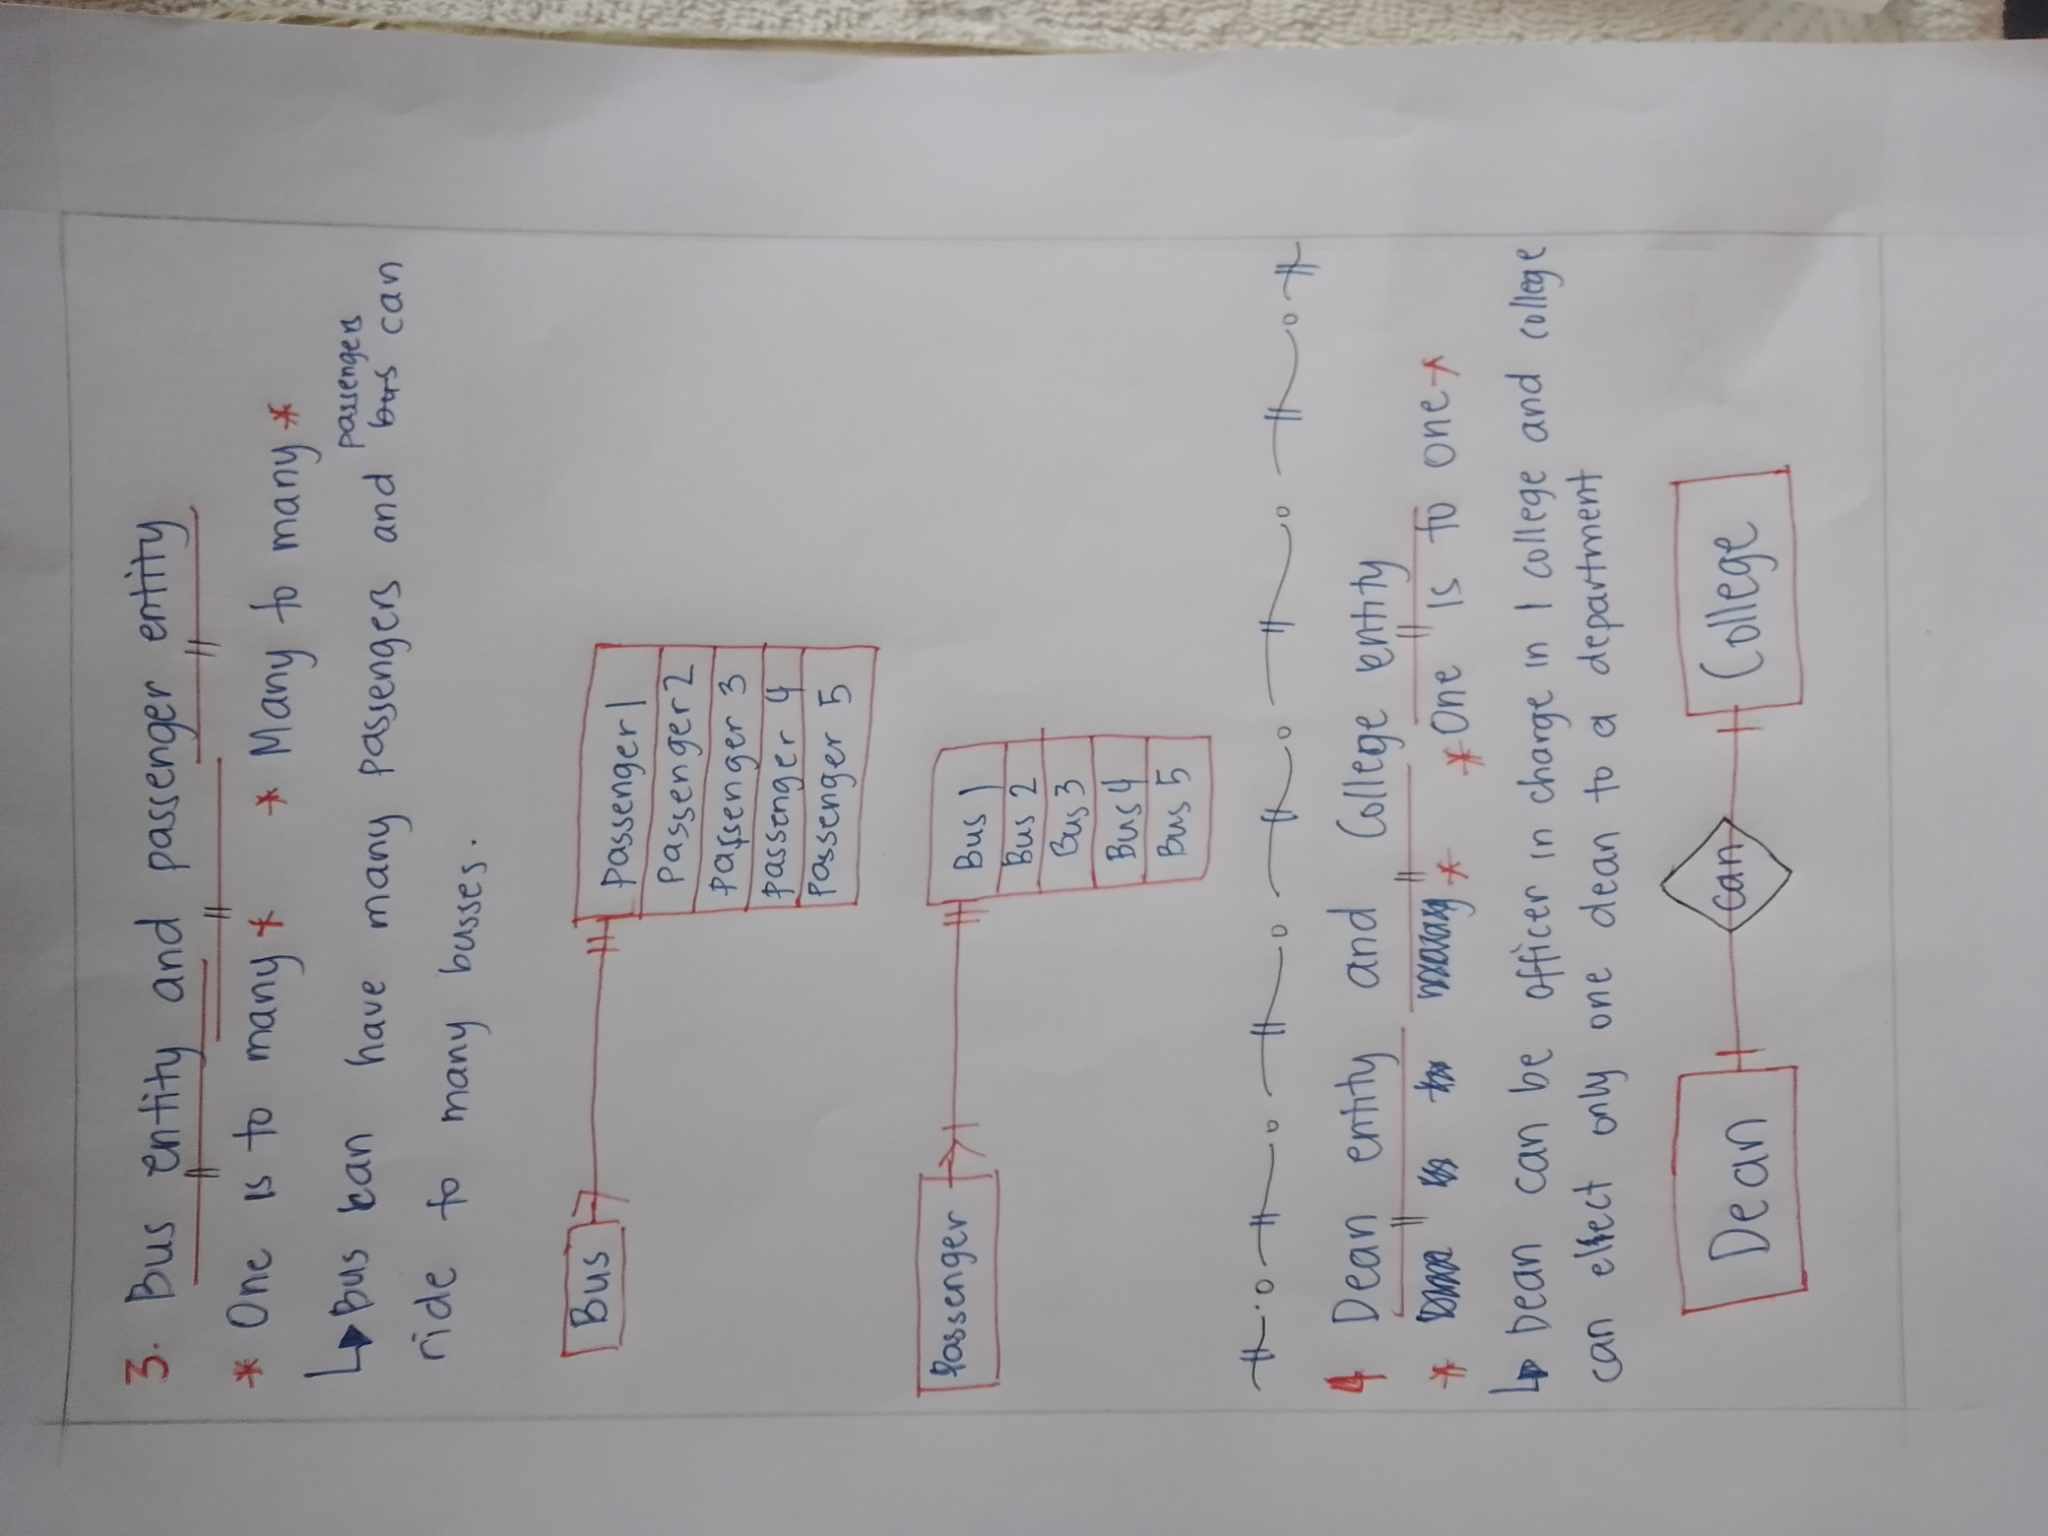 3. Bus entity and passenger entity
* One is to many * * Many to many *
passengers
↳ Bus can have many passengers and bus can
ride to many busses.
Bus
Passenger 1
Passenger 2
Passenger 3
Passenger 4
Passenger 5
Passenger
Bus 1
Bus 2
Bus 3
Bus 4
Bus 5
4 Dean entity and College entity
* * *One is to one*
↳ Dean can be officer in charge in 1 college and college
can elect only one dean to a department
Dean
can
College